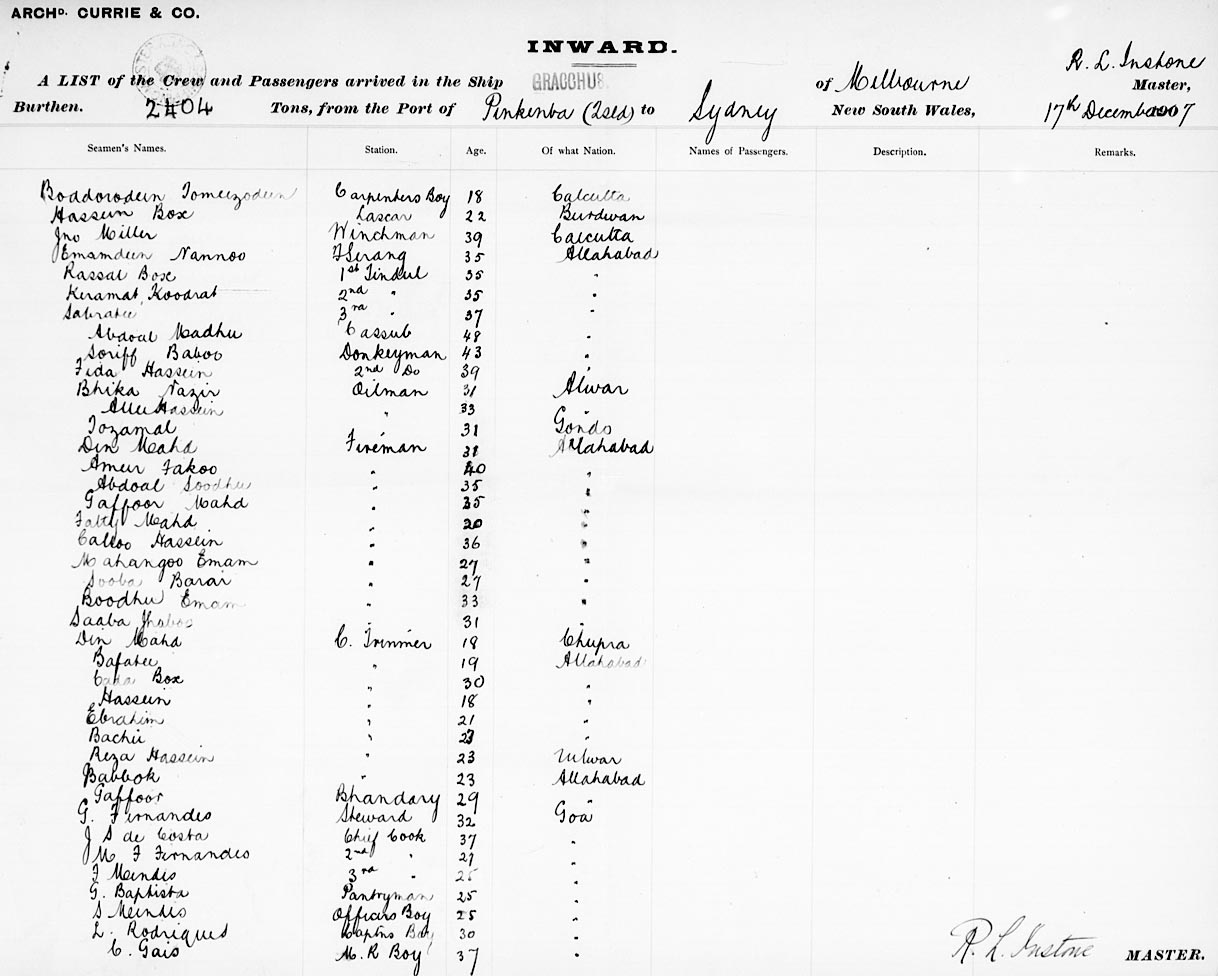 ARCHD. CURRIE & CO.
INWARD.
R. L. Instone
A LIST of the Crew and Passengers arrived in the Ship GRACCHUS. of Melbourne Master,
Burthen. 2404 Tons, from the Port of Pinkenba (Qsld) to Sydney New South Wales, 17th December 1907
Seamen's Names. Station. Age. Of what Nation. Names of Passengers. Description. Remarks.
Boddorodeen Tomeezodeen Carpenters Boy 18 Calcutta
Hassein Box Lascar 22 Burdwan
Jno Miller Winchman 39 Calcutta
Emamdeen Nannoo F Serang 35 Allahabad
Rassal Box 1st Tindul 35 "
Keramat Koodrat 2nd " 35 "
3rd " 37 "
Abdoal Madhu Cassub 48 "
Soriff Baboo Donkeyman 43 "
Fida Hassein 2nd Do 39 "
Bhika Nazir Oilman 31 Alwar
Hassein " 33 "
Tozamal 31 Gondo
Din Mahd Fireman 31 Allahabad
Ameer Fakoo " 40 "
Abdoal Soodhu " 35 "
Gaffoor Mahd " 35 "
Fatty Mahd " 20 "
Calloo Hassein " 36 "
Mahangoo Emam " 27 "
Sooba Barar " 27 "
Boodhu Emam " 33 "
Saaba " 31
Din Mahd C. Trimmer 18 Chupra
Bafatee " 19 Allahabad
Box " 30 "
Hassein " 18 "
Ebrahim " 21 "
Bachu " "
Reza Hassein " 23 Ulwar
Babbok " 23 Allahabad
Gaffoor Bhandary 29 "
G. Fernandes Steward 32 Goa
J S de Costa Chief Cook 37 "
M F Fernandes 2nd " 27 "
F Mendis 3rd " 25 "
G. Baptista Pantryman 25 "
S Mendis Officers Boy 25 "
L. Rodriques Captns Boy 30 "
C. Gais M. R Boy 37 "
R. L. Instone MASTER.